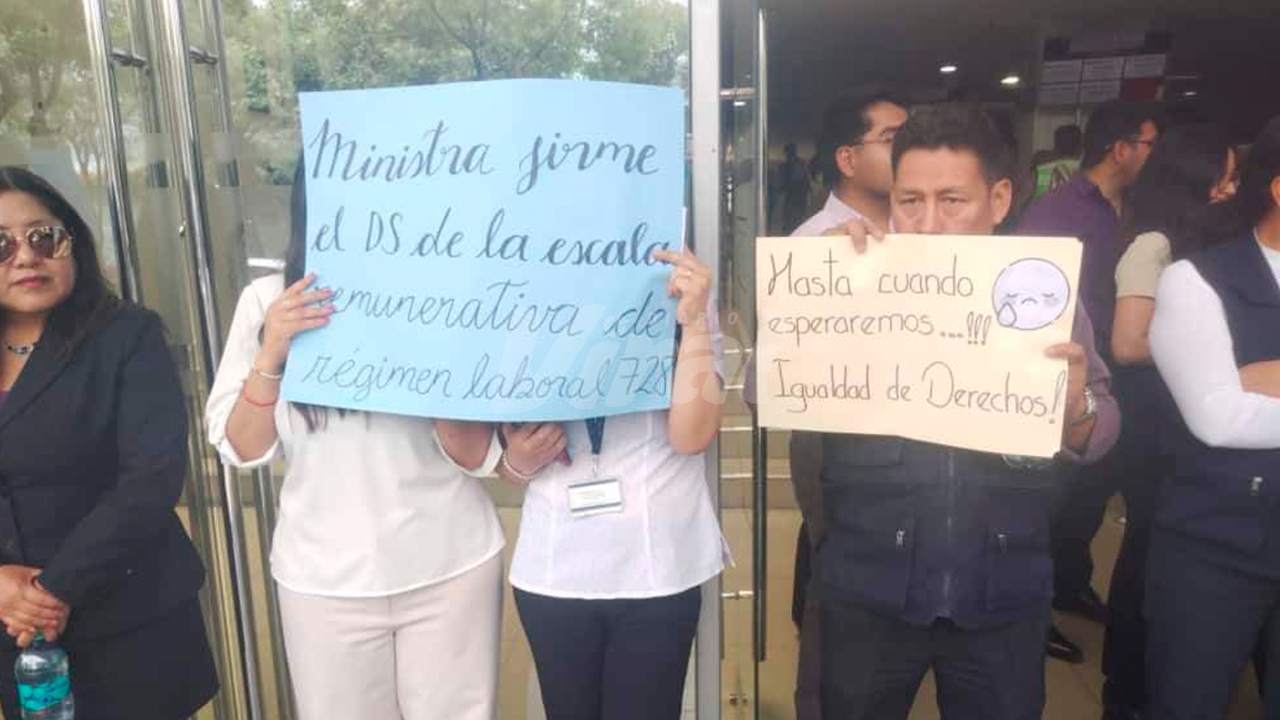 Ministra firme
el DS de la escala
remunerativa de
régimen laboral 728
Hasta cuando
esperaremos...!!!
Igualdad de Derechos!